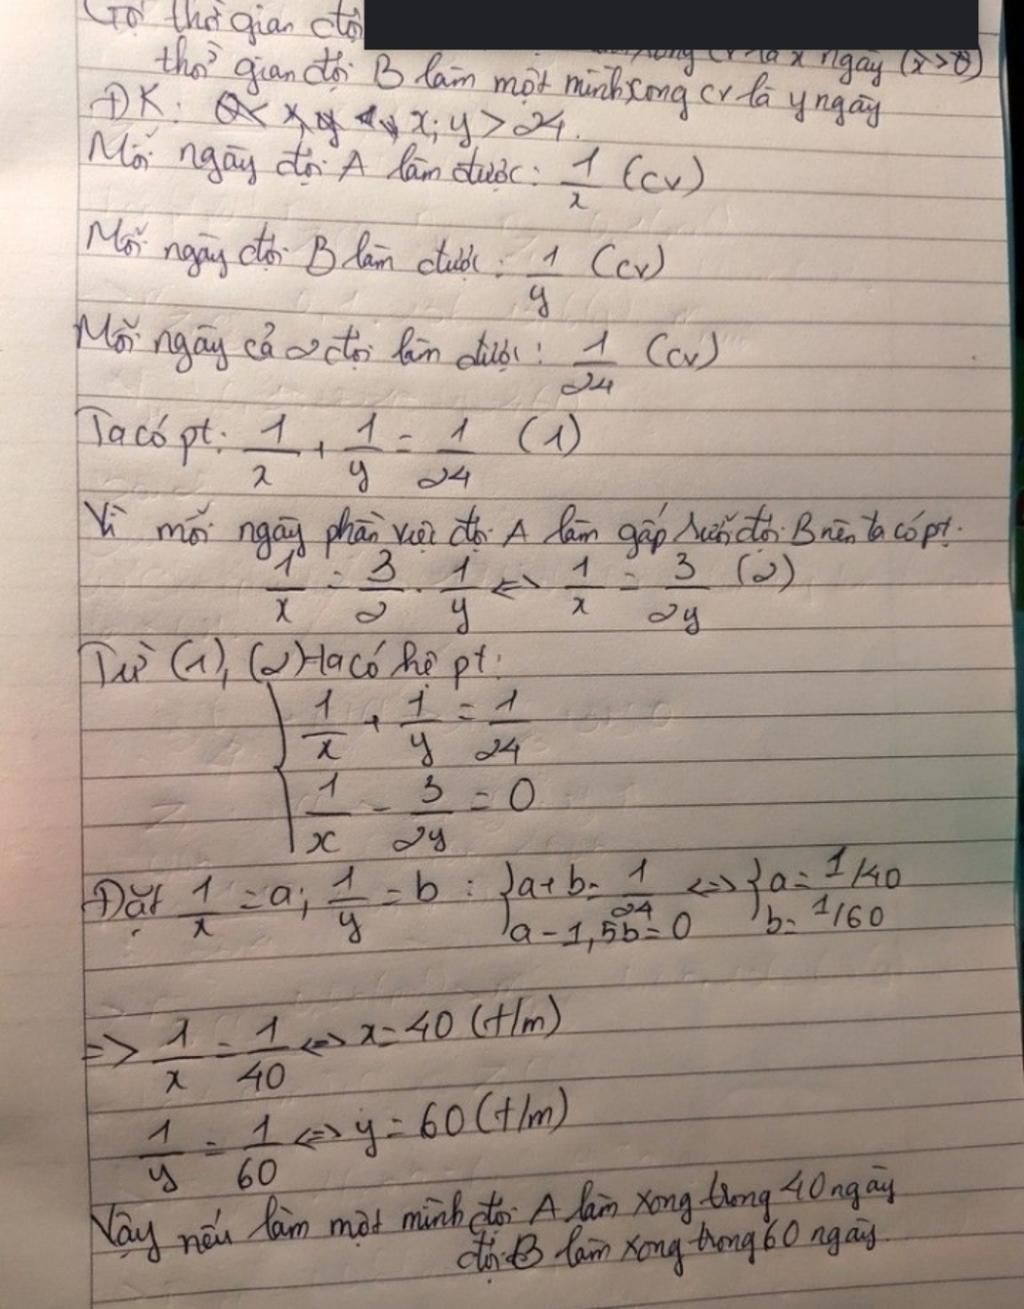 Gọi thời gian đội
xong cv là x ngày (x>0)
thời gian đội B làm một mình xong cv là y ngày
ĐK: x; y > 24.
Mỗi ngày đội A làm được: 1/x (cv)
Mỗi ngày đội B làm được: 1/y (cv)
Mỗi ngày cả 2 đội làm được: 1/24 (cv)
Ta có pt: 1/x + 1/y = 1/24 (1)
Vì mỗi ngày phần việc đội A làm gấp rưỡi đội B nên ta có pt:
1/x = 3/2 . 1/y <=> 1/x = 3/2y (2)
Từ (1), (2) ta có hệ pt:
{ 1/x + 1/y = 1/24
1/x - 3/2y = 0
Đặt 1/x = a; 1/y = b : { a + b = 1/24 <=> { a = 1/40
a - 1,5b = 0 b = 1/60
=> 1/x = 1/40 <=> x = 40 (t/m)
1/y = 1/60 <=> y = 60 (t/m)
Vậy nếu làm một mình đội A làm xong trong 40 ngày
đội B làm xong trong 60 ngày.